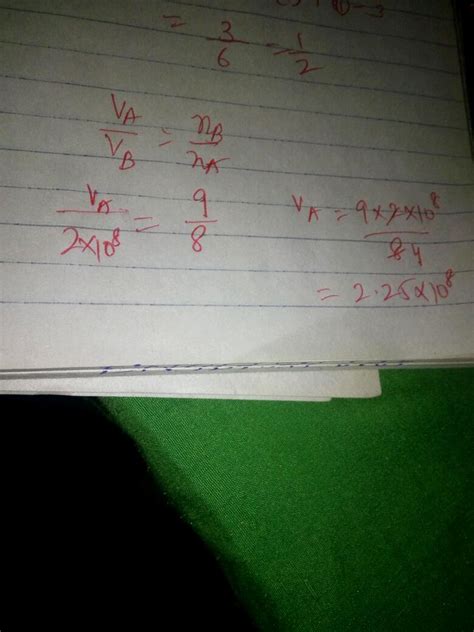 = 3/6 = 1/2
V_A/V_B = n_B/n_A
V_A/2×10⁸ = 9/8
V_A = 9×2×10⁸/8 4
= 2.25×10⁸